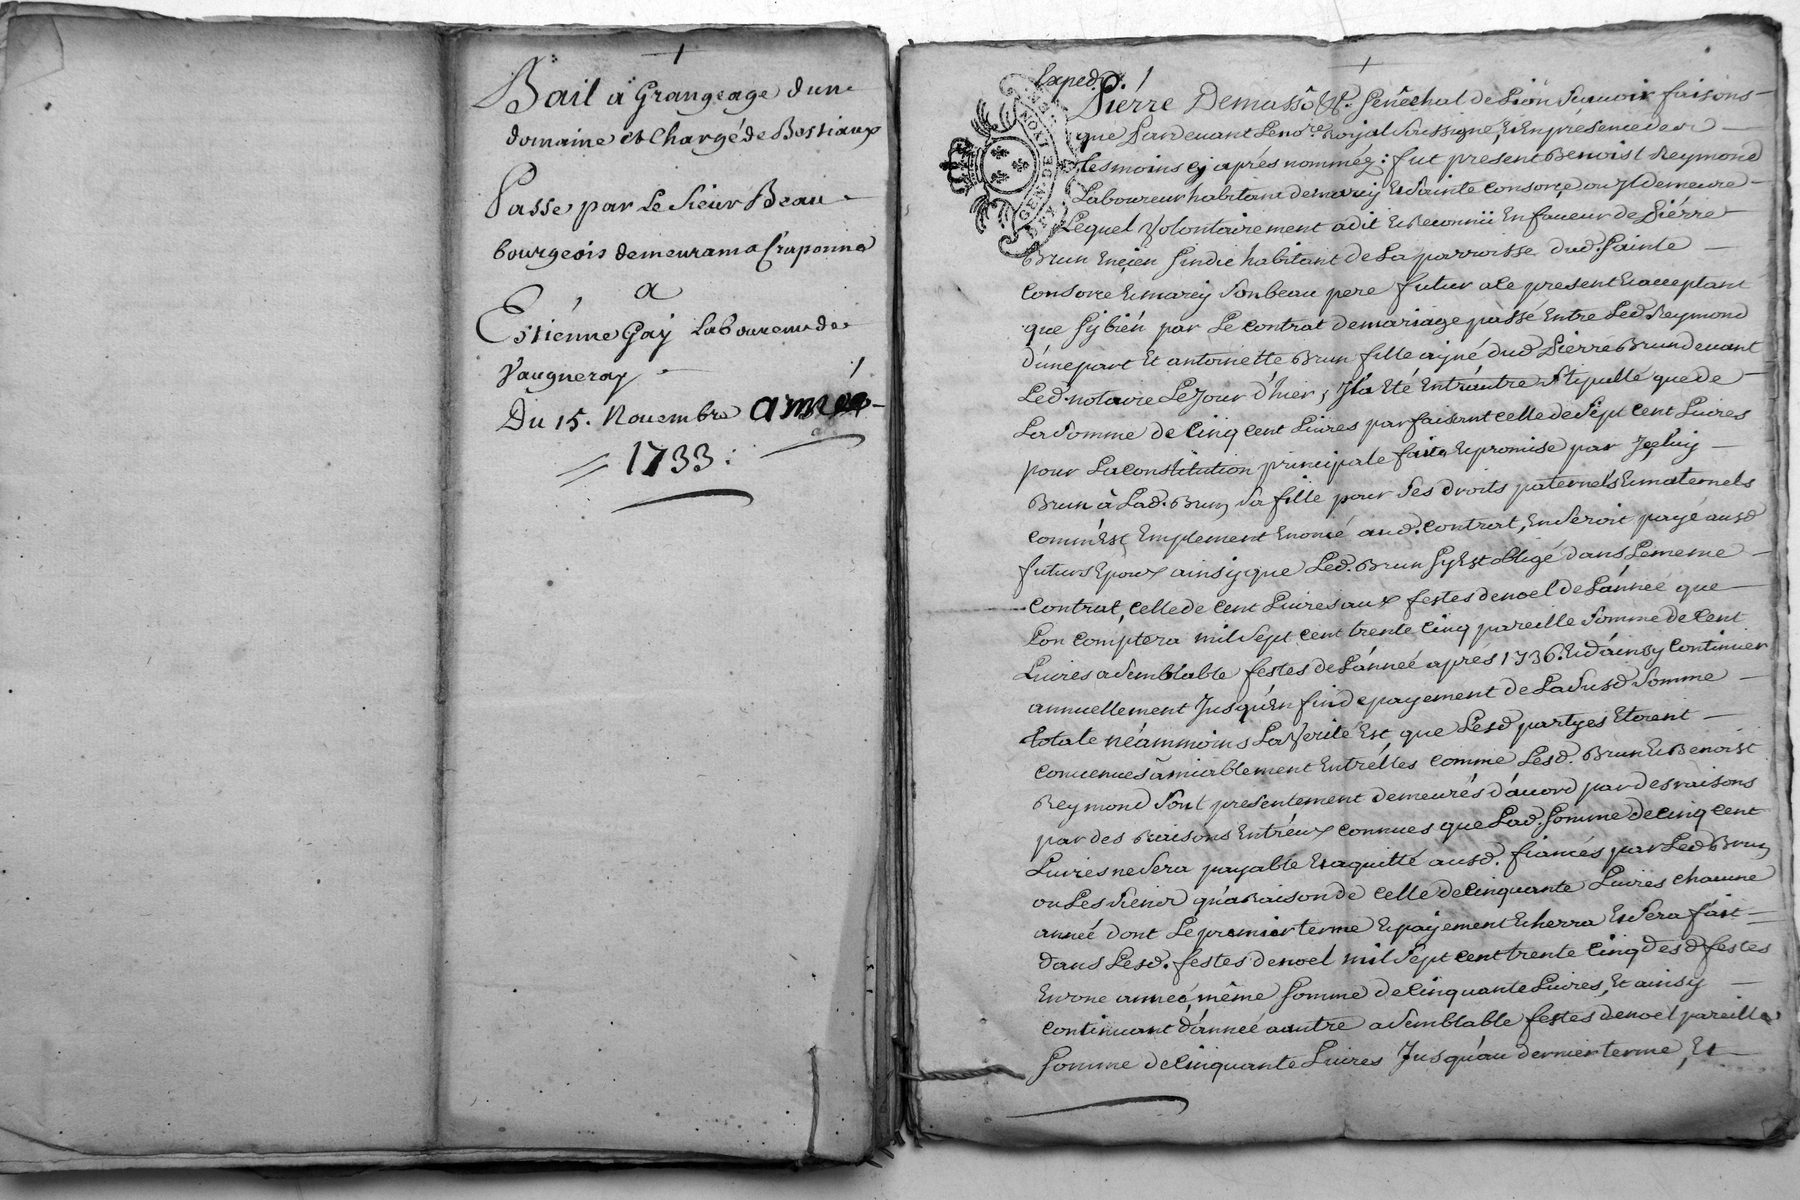 Bail a Grangeage dun
domaine et Chargé de Bestiaux
Passe par Le Sieur Beau
bourgeois demeurant a Craponne
a
Estiénne Gay Laboureur de
Vaugneray
Du 15. Novembre année
1733.
Exped.
Piérre Demasso Sénéchal de Lion Scavoir faisons
que Pardevant Le no.re Royal Soussigné, et En présence des
tesmoins cy aprés nommés: fut present Benoist Reymond
Laboureur habitant de marcy et Sainte Consorce ou Jl demeure
Lequel Volontairement a dit et Reconnu En faveur de Piérre
Brun Encien Sindic habitant de La parroisse dud. Sainte
Consorce et marcy Son beau pere futur a ce present et acceptant
que Sy bién par Le Contrat de mariage passé Entre Led. Reymond
d'une part Et antoinette Brun fille ayné dud Pierre Brun devant
Led. notaire Le Jour d'hier, Jl a Eté Entr'autre Stipullé que de
La Somme de Cinq Cent Livres parfaisant celle de Sept Cent Livres
pour La constitution principale faite et promise par Jceluy
Brun à Lad. Brun Sa fille pour Ses droits paternels et maternels
comm'Est Emplement Enoncé aud. Contrat, En Seroit payé ausd
futurs Epoux ainsy que Led. Brun Sy Est obligé dans Le meme
Contrat, Celle de Cent Livres aux festes de noel de L'année que
Lon Comptera mil Sept cent trente Cinq pareille Somme de Cent
Livres a Semblable festes de L'anneé aprés 1736. Et d'ainsy Continuer
annuellement Jusqu'En fin de payement de La Susd Somme
totale néammoins La Verité Est que Lesd partyes Etorent
Convenues amiablement Entr'élles comme Lesd. Brun Et Benoist
Reymond Sont presentement demeurés d'acord par des raisons
par des Raisons Entr'eux connues que Lad. Somme de Cinq Cent
Livres ne Sera payable Et aquitté ausd. fiancés par Led Brun
ou Les Siens qu'a Raison de Celle de Cinquante Livres chacune
anneé dont Le premier terme et payement Echerra Et Sera fait
dans Lesd. festes de noel mil Sept Cent trente Cinq desd festes
En une anneé même Somme de Cinquante Livres, Et ainsy
Continuant d'anneé a autre a Semblable festes de noel pareille
Somme de Cinquante Livres Jusqu'au dernier terme, Et